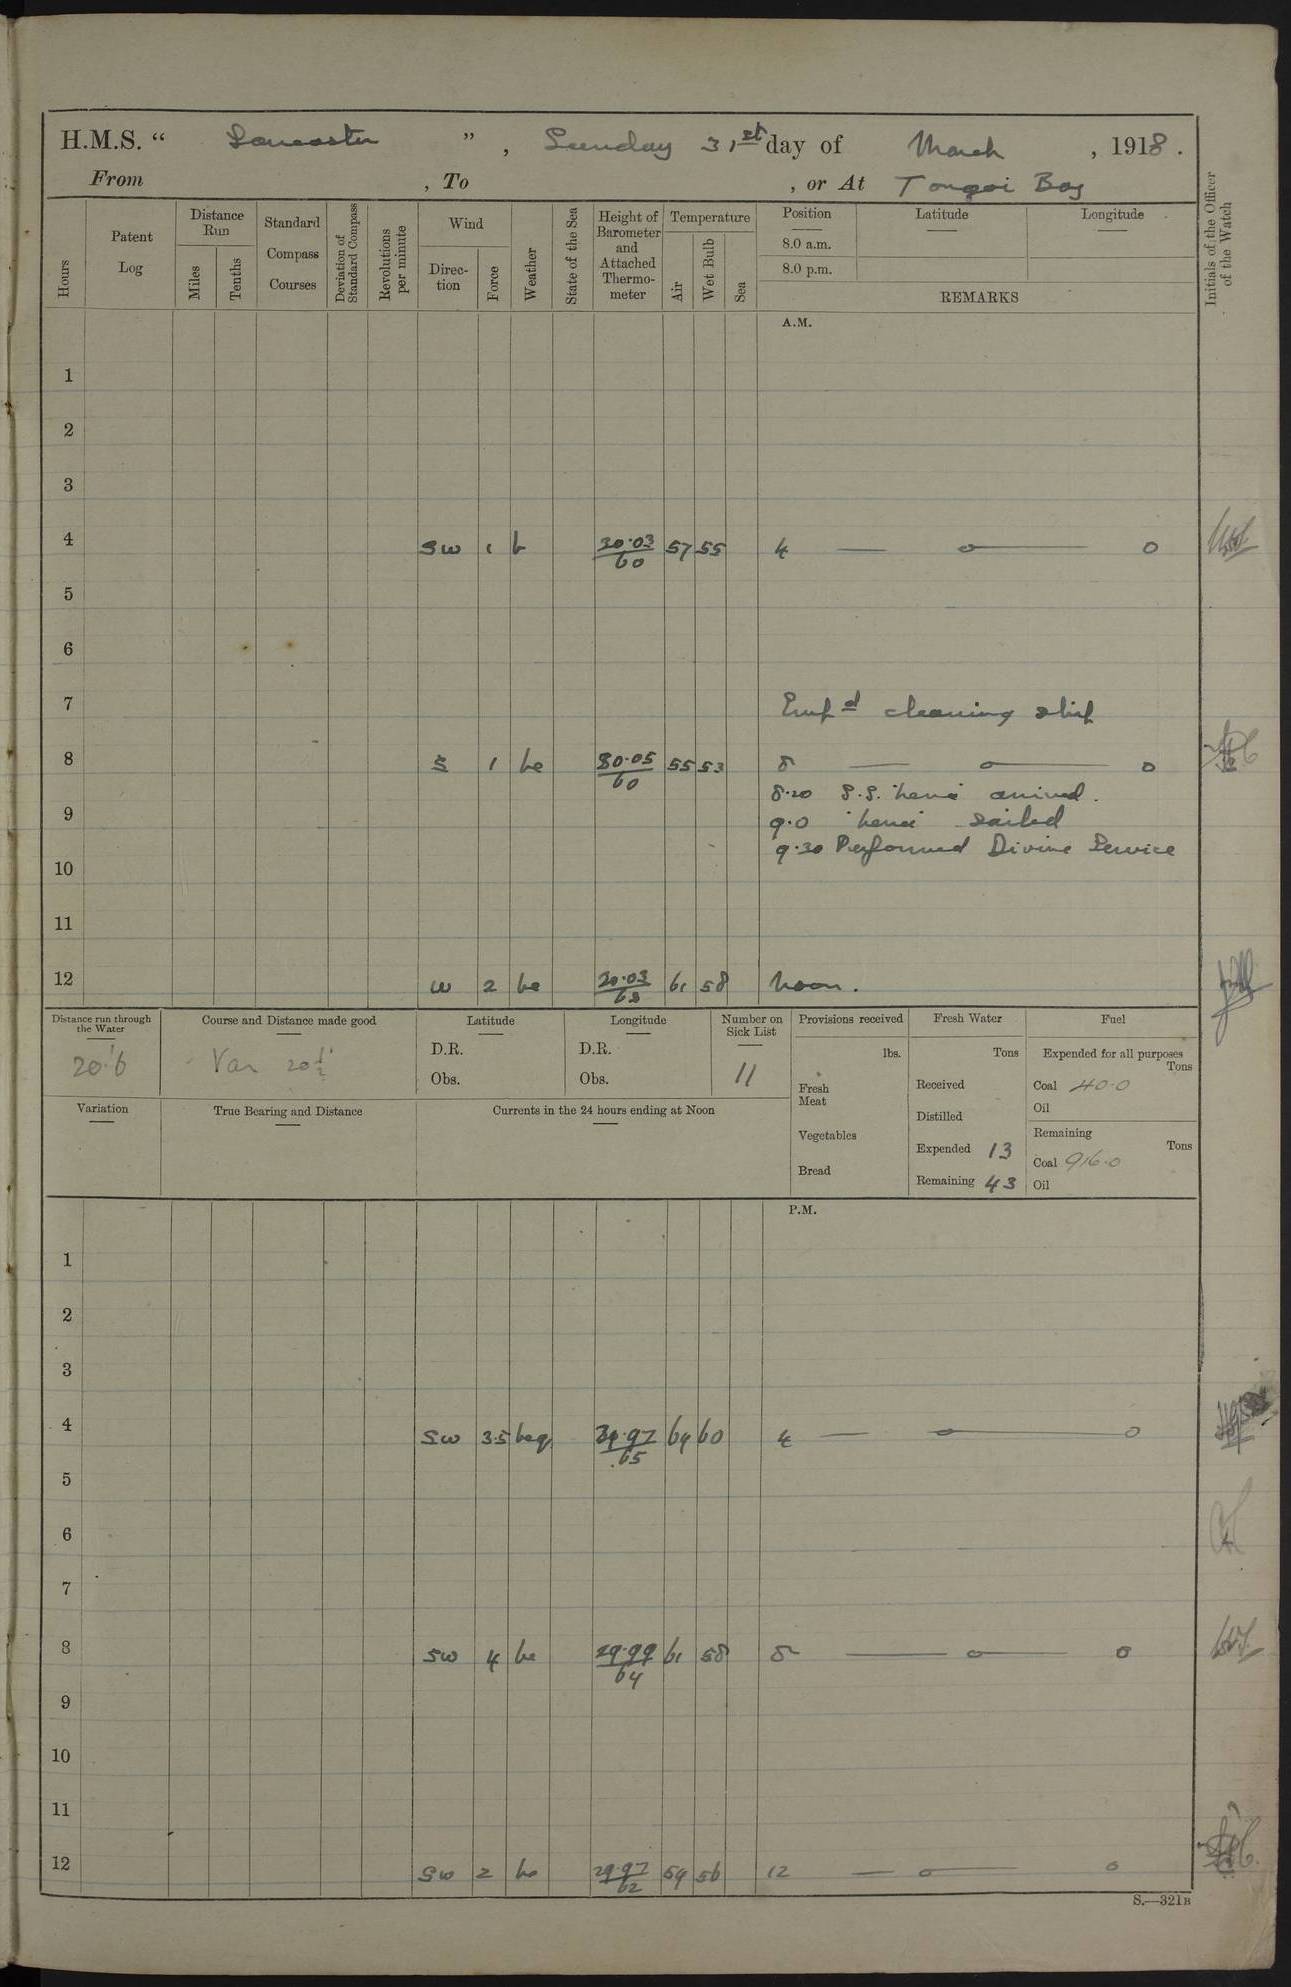 H.M.S. " Lancaster ", Sunday 31st day of March, 1918.
From , To , or At Tongoi Bay
Hours
Patent Log
Distance Run
Miles
Tenths
Standard Compass Courses
Deviation of Standard Compass
Revolutions per minute
Wind
Direction
Force
Weather
State of the Sea
Height of Barometer and Attached Thermometer
Temperature
Air
Wet Bulb
Sea
Position
8.0 a.m.
8.0 p.m.
Latitude
Longitude
REMARKS
Initials of the Officer of the Watch
A.M.
1
2
3
4 SW 1 b 30.03/60 57 55 4 — o — o
5
6
7 Empd cleaning ship
8 S 1 bc 30.05/60 55 53 8 — o — o
8.20 S.S. arrived.
9
9.0 sailed
9.30 Performed Divine Service
10
11
12 W 2 bc 30.03/62 61 58 Noon.
Distance run through the Water
20.6
Course and Distance made good
Var 20½
Latitude
D.R.
Obs.
Longitude
D.R.
Obs.
Number on Sick List
11
Provisions received
lbs.
Fresh Meat
Vegetables
Bread
Fresh Water
Tons
Received
Distilled
Expended 13
Remaining 43
Fuel
Expended for all purposes
Tons
Coal 40.0
Oil
Remaining
Tons
Coal 916.0
Oil
Variation
True Bearing and Distance
Currents in the 24 hours ending at Noon
P.M.
1
2
3
4 SW 3.5 bcq 29.97/65 64 60 4 — o — o
5
6
7
8 SW 4 bc 29.99/64 61 58 8 — o — o
9
10
11
12 SW 2 bc 29.97/62 59 56 12 — o — o
S.—321B